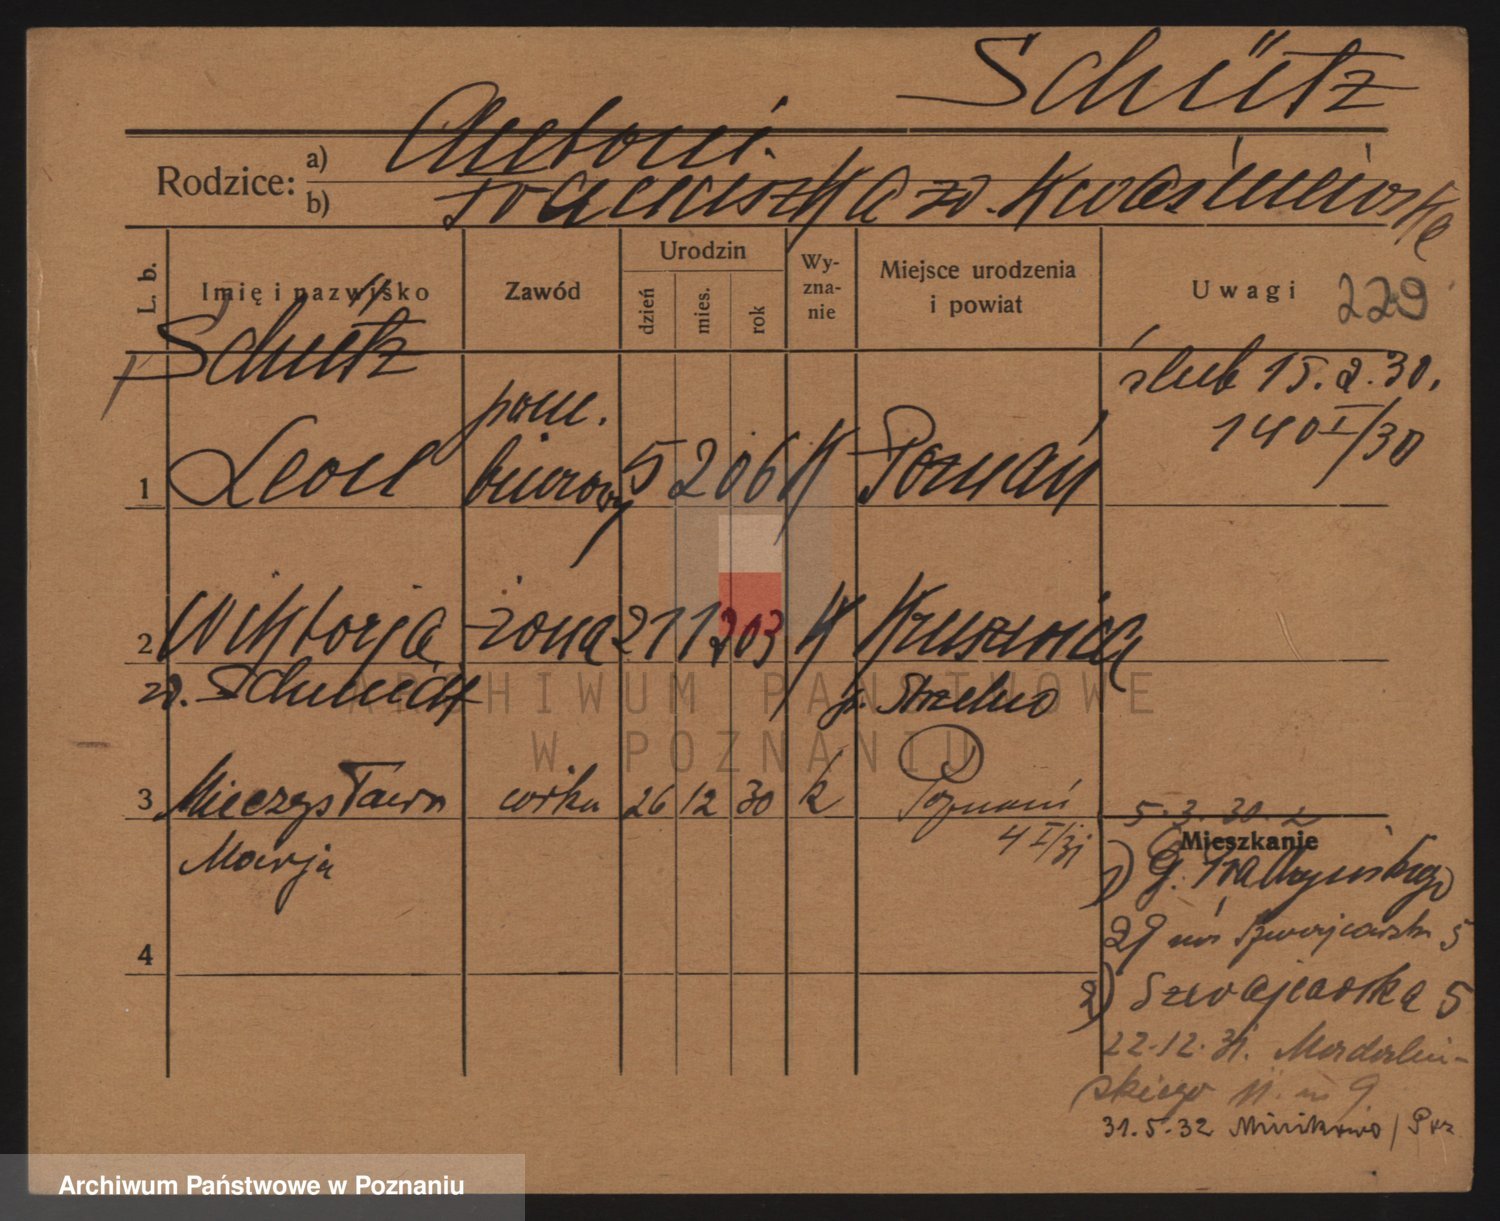 Schütz
Rodzice: a) Antoni.
b) Franciszka zd. Kwaśniewska
L. b. Imię i nazwisko Zawód Urodzin dzień mies. rok Wy-zna-nie Miejsce urodzenia i powiat Uwagi 229
Schütz ślub 15.2.30.
pom. 140 I/30
1 Leon biurowy 5 2 06 K Poznań
2 Wiktorja żona 21 12 03 K Kruszwica
zd. Schmidt p. Strzelno
ARCHIWUM PAŃSTWOWE
W POZNANIU
3 Mieczysława córka 26 12 30 k Poznań
Marja 4 I/31
5.3.30.
Mieszkanie
1) G.
29 Szwajcarska 5
4
2) Szwajcarska 5
22.12.31.
skiego 11. m 9
31.5.32 Minikowo / Poz.
Archiwum Państwowe w Poznaniu